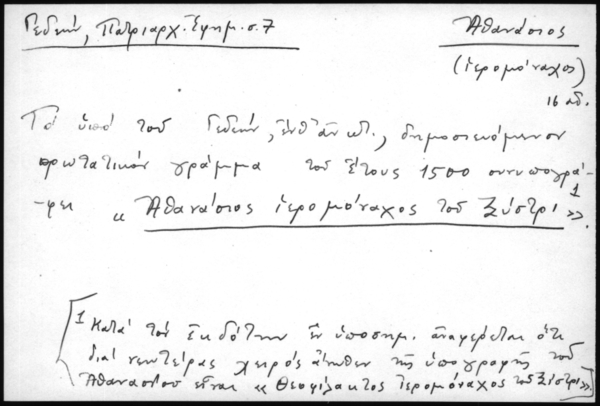 Γεδεών, Πατριαρχ. Ἐφημ. σ. 7
Ἀθανάσιος
(ἱερομόναχος)
16 αἰ.
Τό ὑπό τοῦ Γεδεών, ἔνθ' ἀν. κτ., δημοσιευόμενον
πρωτατικόν γράμμα τοῦ ἔτους 1500 συνυπογρά-
-φει « Ἀθανάσιος ἱερομόναχος τοῦ Ξύστρι »1.
1 Κατά τόν ἐκδότην ἐν ὑποσημ. ἀναφέρεται ὅτι
διά νεωτέρας χειρός ἄνωθεν τῆς ὑπογραφῆς τοῦ
Ἀθανασίου εἶναι « Θεοφίλακτος ἱερομόναχος τοῦ Ξύστρι».